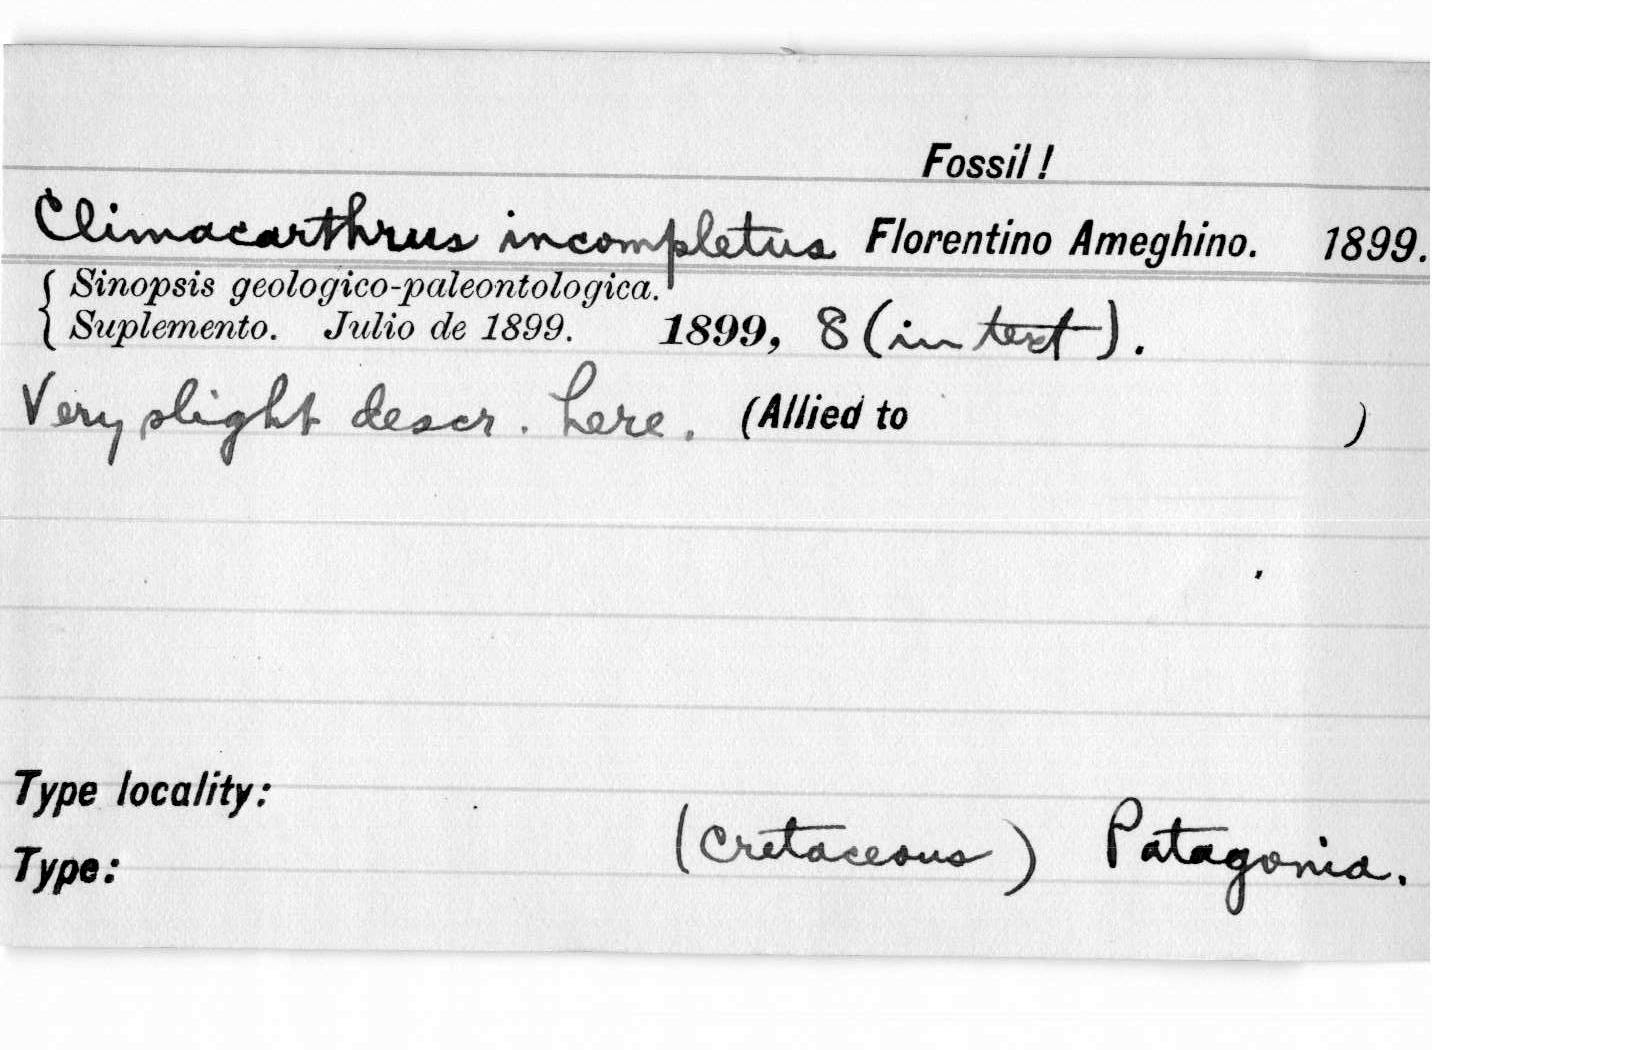 Fossil !
Climacarthrus incompletus Florentino Ameghino. 1899.
Sinopsis geologico-paleontologica.
Suplemento. Julio de 1899. 1899, 8 (in text).
Very slight descr. here. (Allied to )
Type locality:
(Cretaceous) Patagonia.
Type: